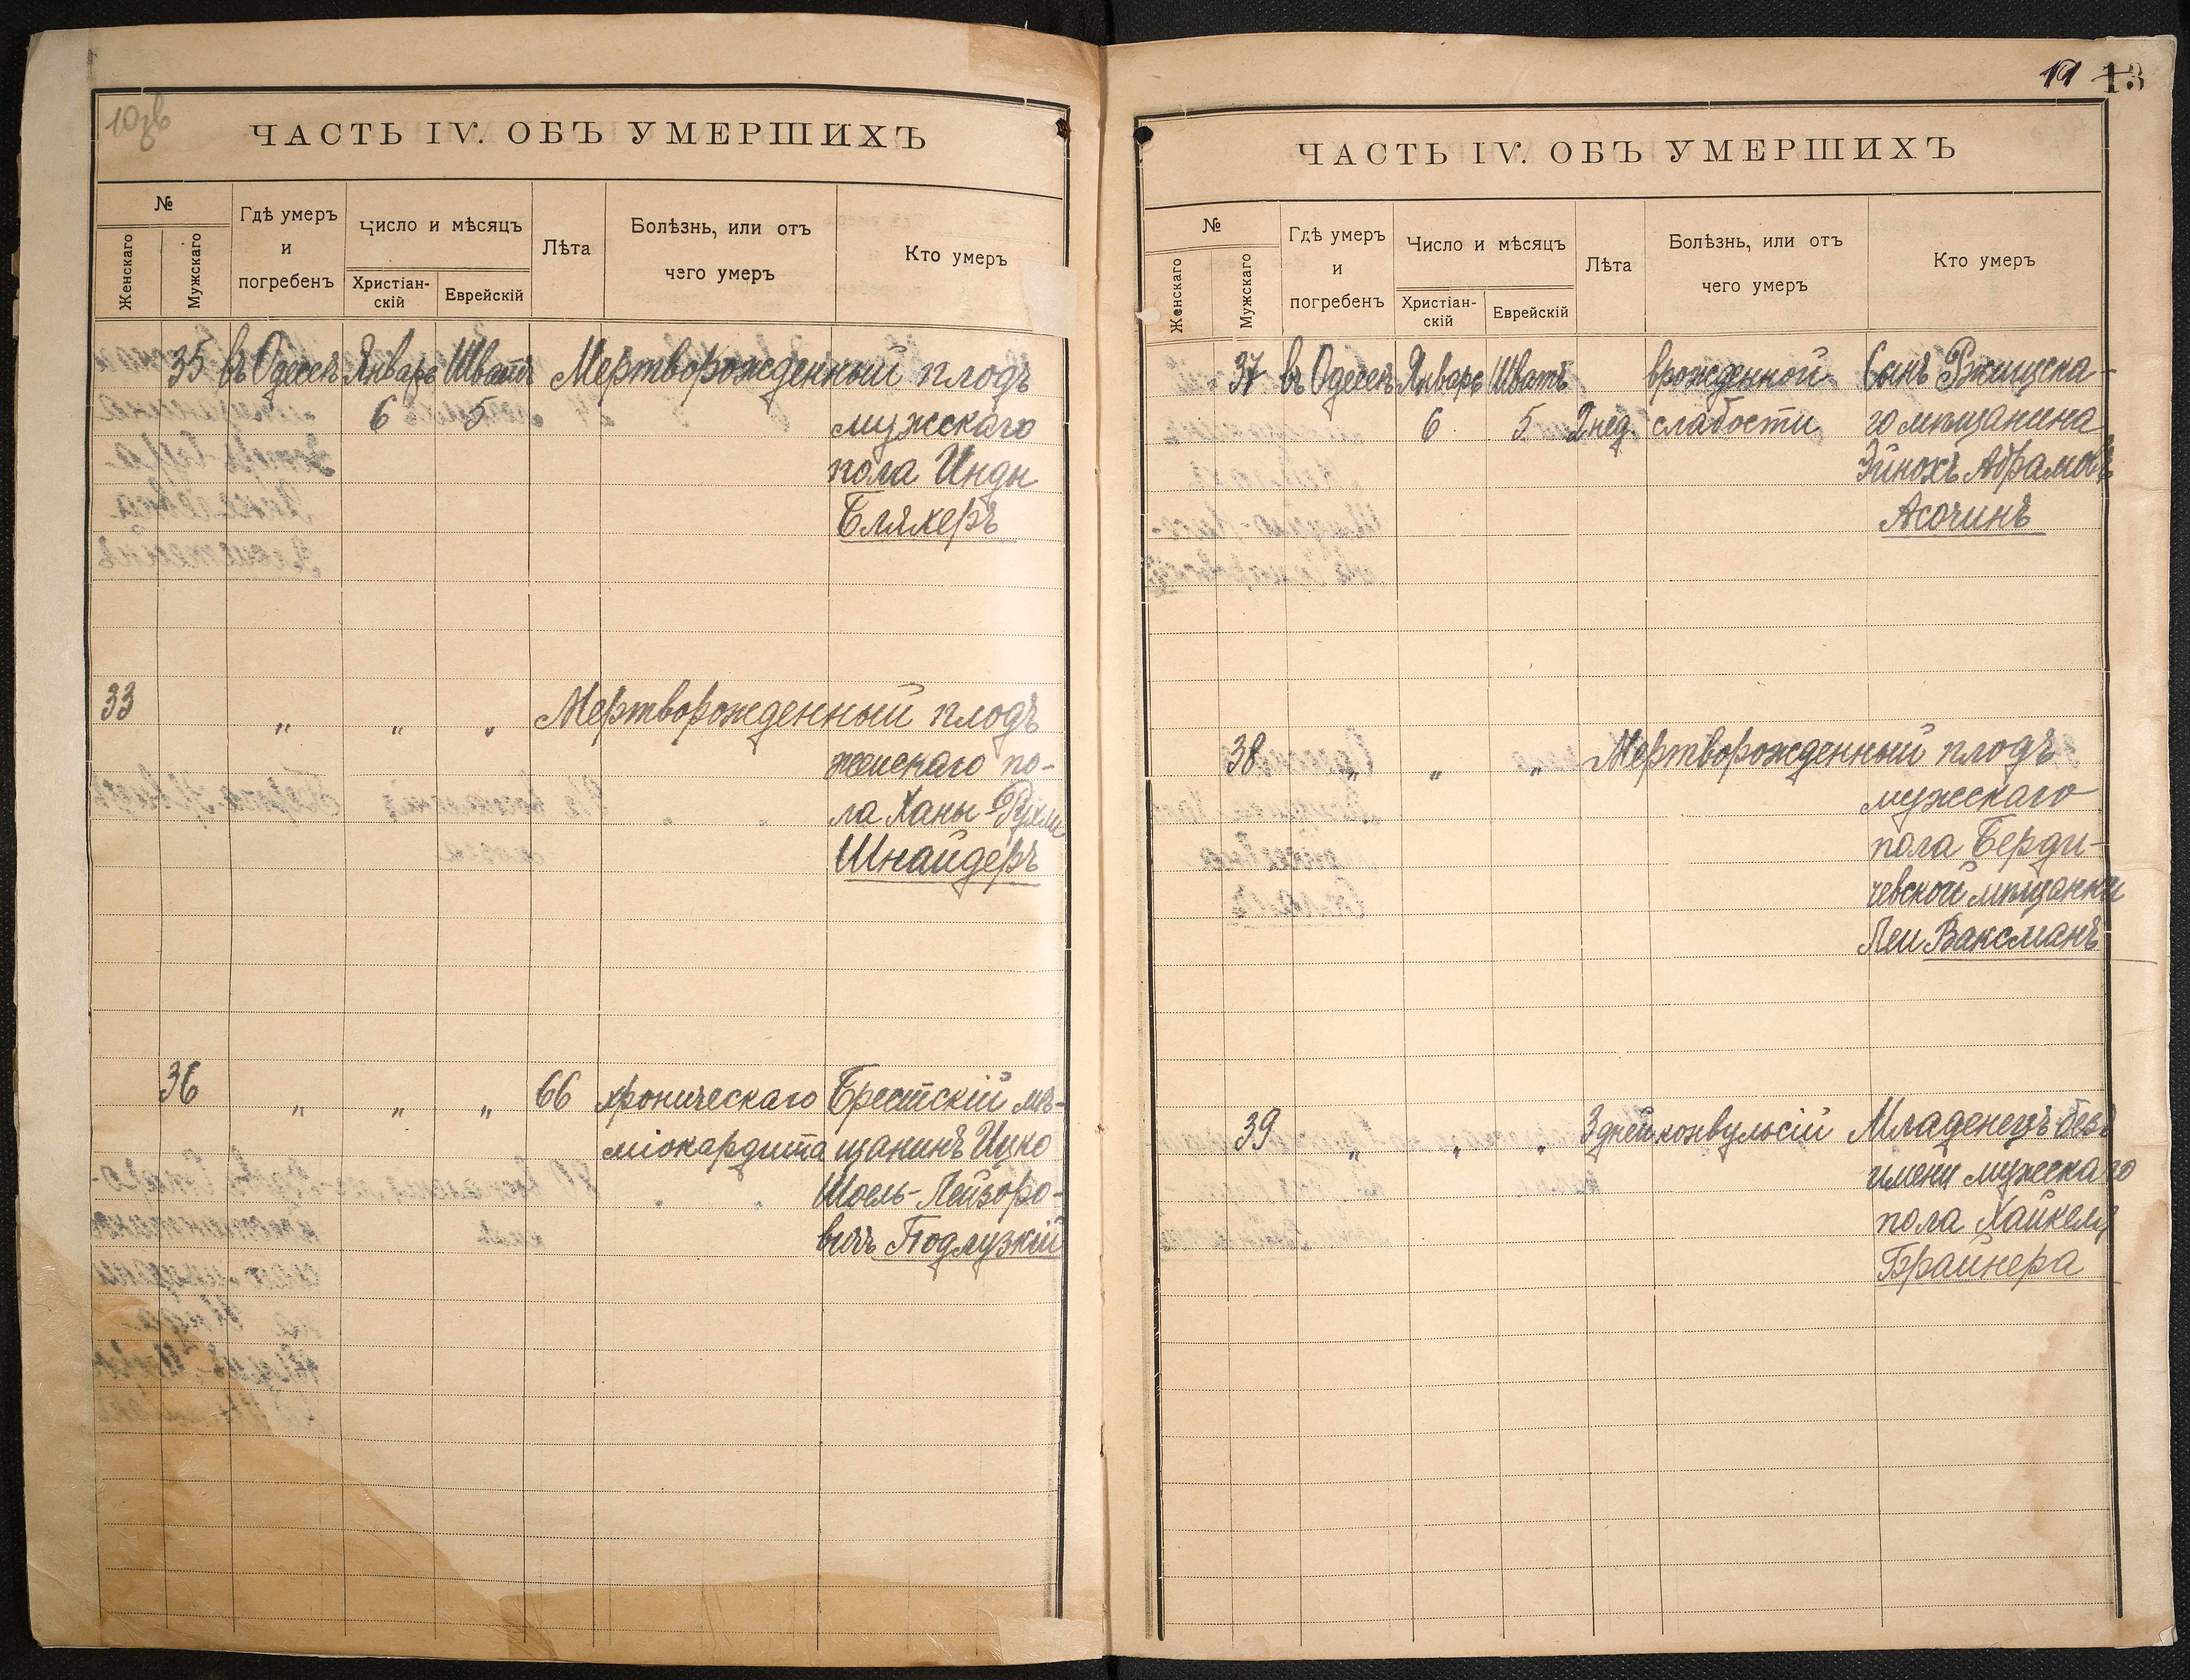 10зв
ЧАСТЬ IV. ОБЪ УМЕРШИХЪ
№
Женскаго
Мужскаго
Гдѣ умеръ
и
погребенъ
Число и мѣсяцъ
Христіан-
скій
Еврейскій
Лѣта
Болѣзнь, или отъ
чего умеръ
Кто умеръ
35 въ Одессѣ Январь Шватъ Мертворожденный плодъ
6 5 мужскаго
пола Инды
Бляхеръ
33 „ „ „ Мертворожденный плодъ
женскаго по-
ла Ханы-Рухли
Шнайдеръ
36 „ „ „ 66 хроническаго Брестскій мѣ-
міокардита щанинъ Ицко
Шоель-Лейзоро-
вичъ Подлузкій
11 13
ЧАСТЬ IV. ОБЪ УМЕРШИХЪ
№
Женскаго
Мужскаго
Гдѣ умеръ
и
погребенъ
Число и мѣсяцъ
Христіан-
скій
Еврейскій
Лѣта
Болѣзнь, или отъ
чего умеръ
Кто умеръ
37 въ Одессѣ Январь Шватъ врожденной Сынъ Ржищска-
6 5 2 нед. слабости го мѣщанина
Эйнохъ Абрамовъ
Асочинъ
38 „ „ „ Мертворожденный плодъ
мужскаго
пола Берди-
чевской мѣщанки
Леи Ваксманъ
39 „ „ „ 3 дней конвульсій Младенецъ безъ
имени мужскаго
пола Хайкеля
Брайнера